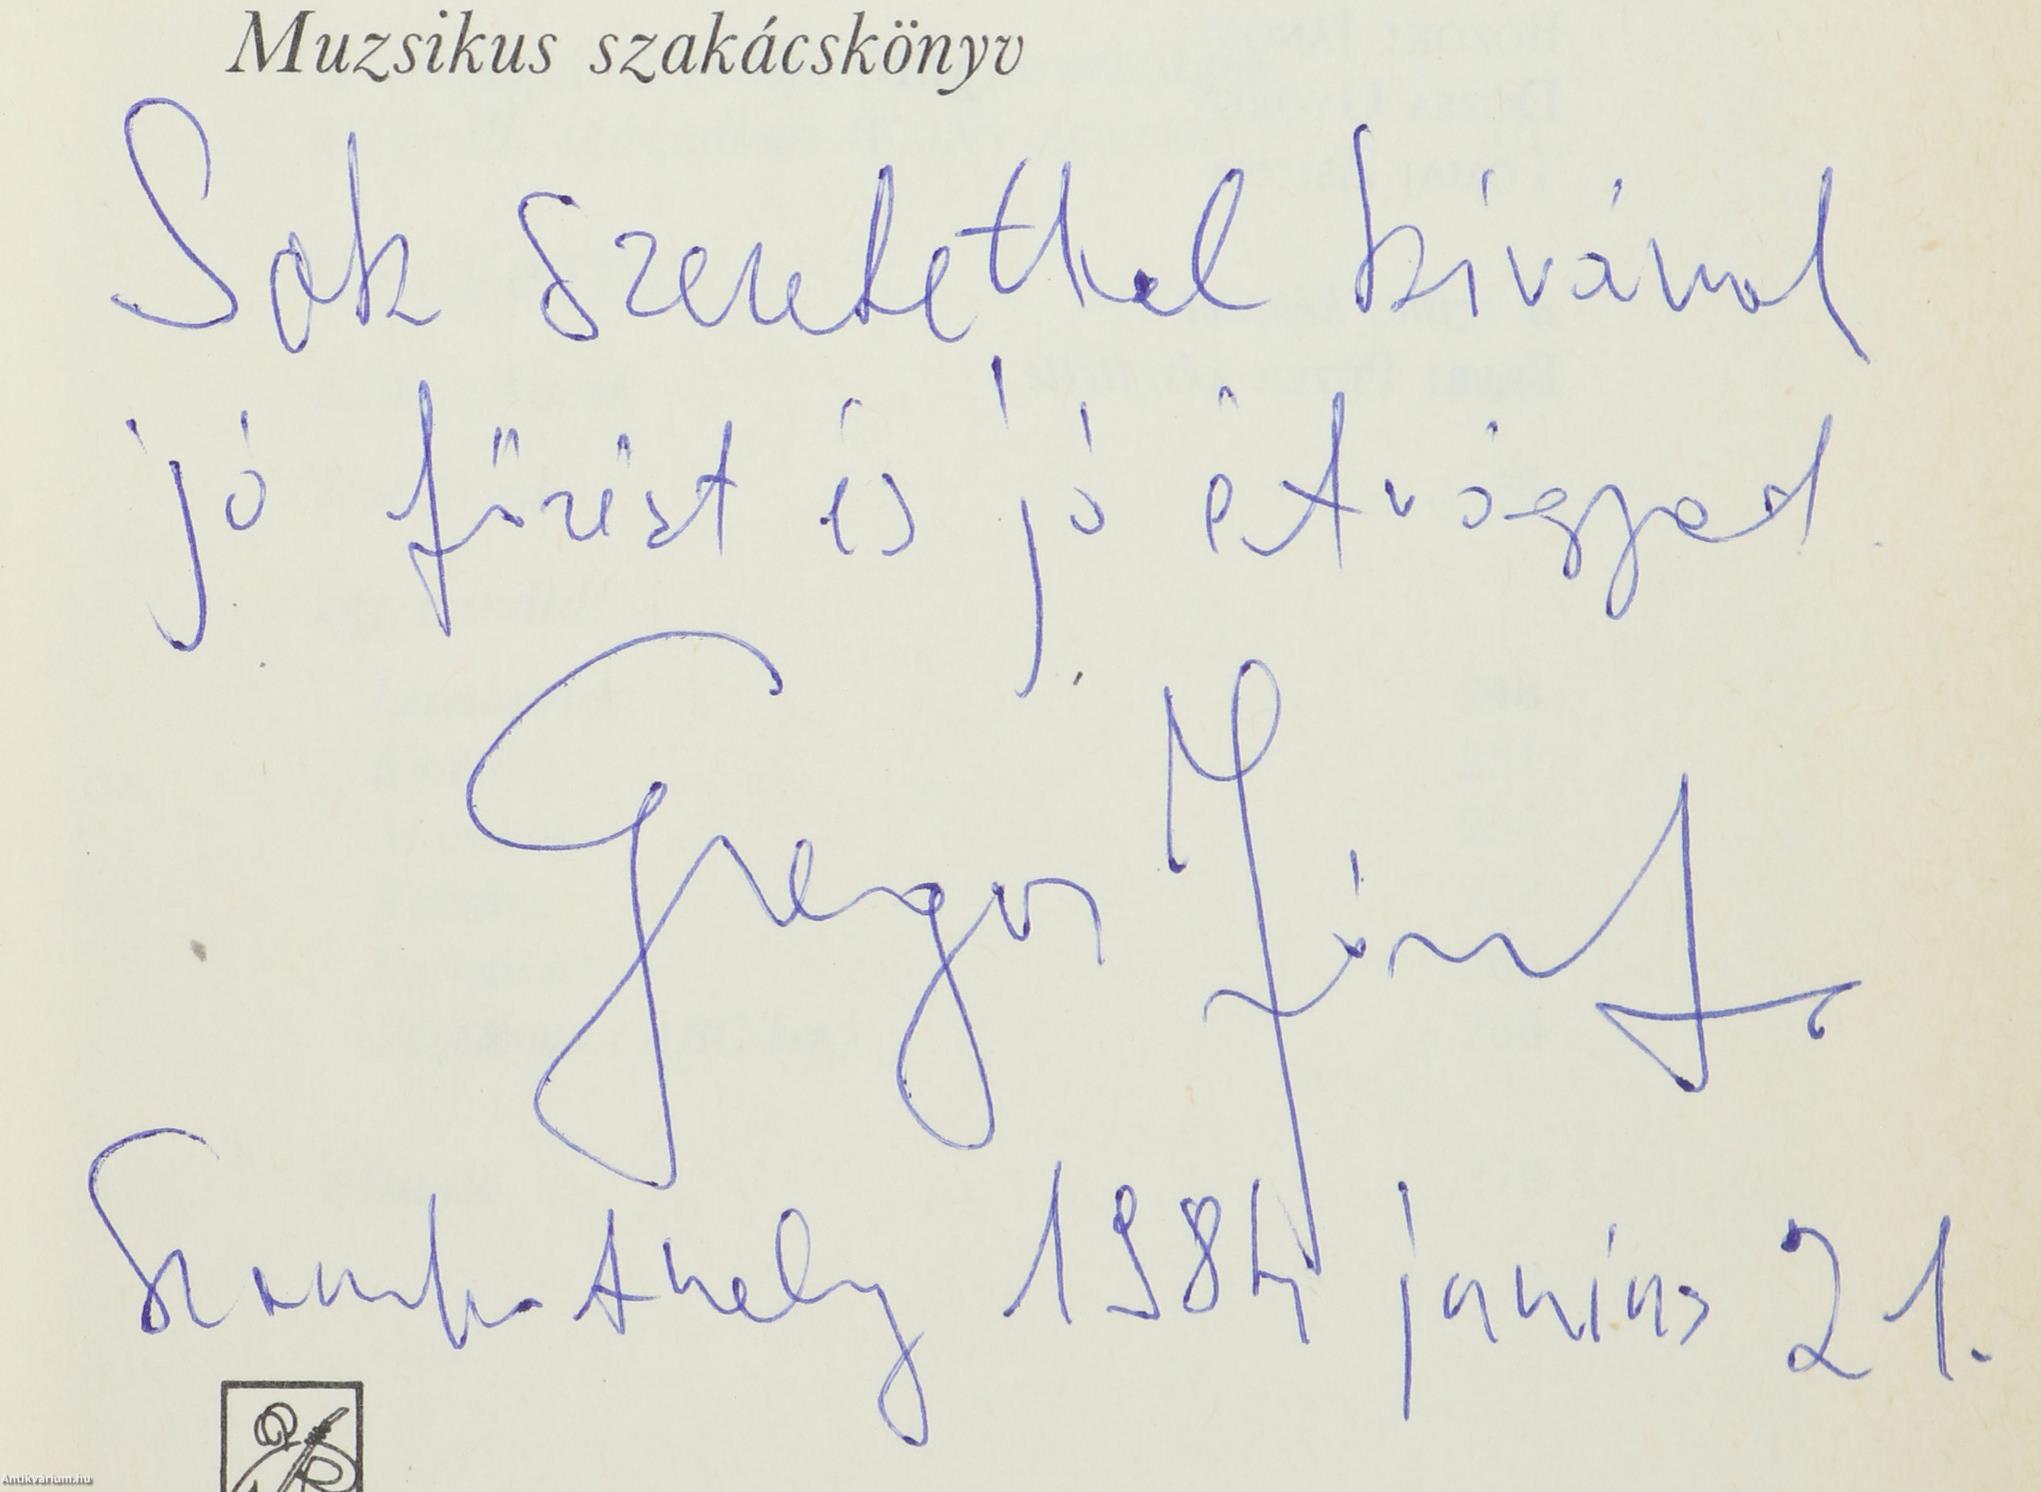 Muzsikus szakácskönyv
Sok szeretettel kívánok
jó főzést és jó étvágyat
Gregor József
Szombathely 1984 június 21.
Antikvárium.hu